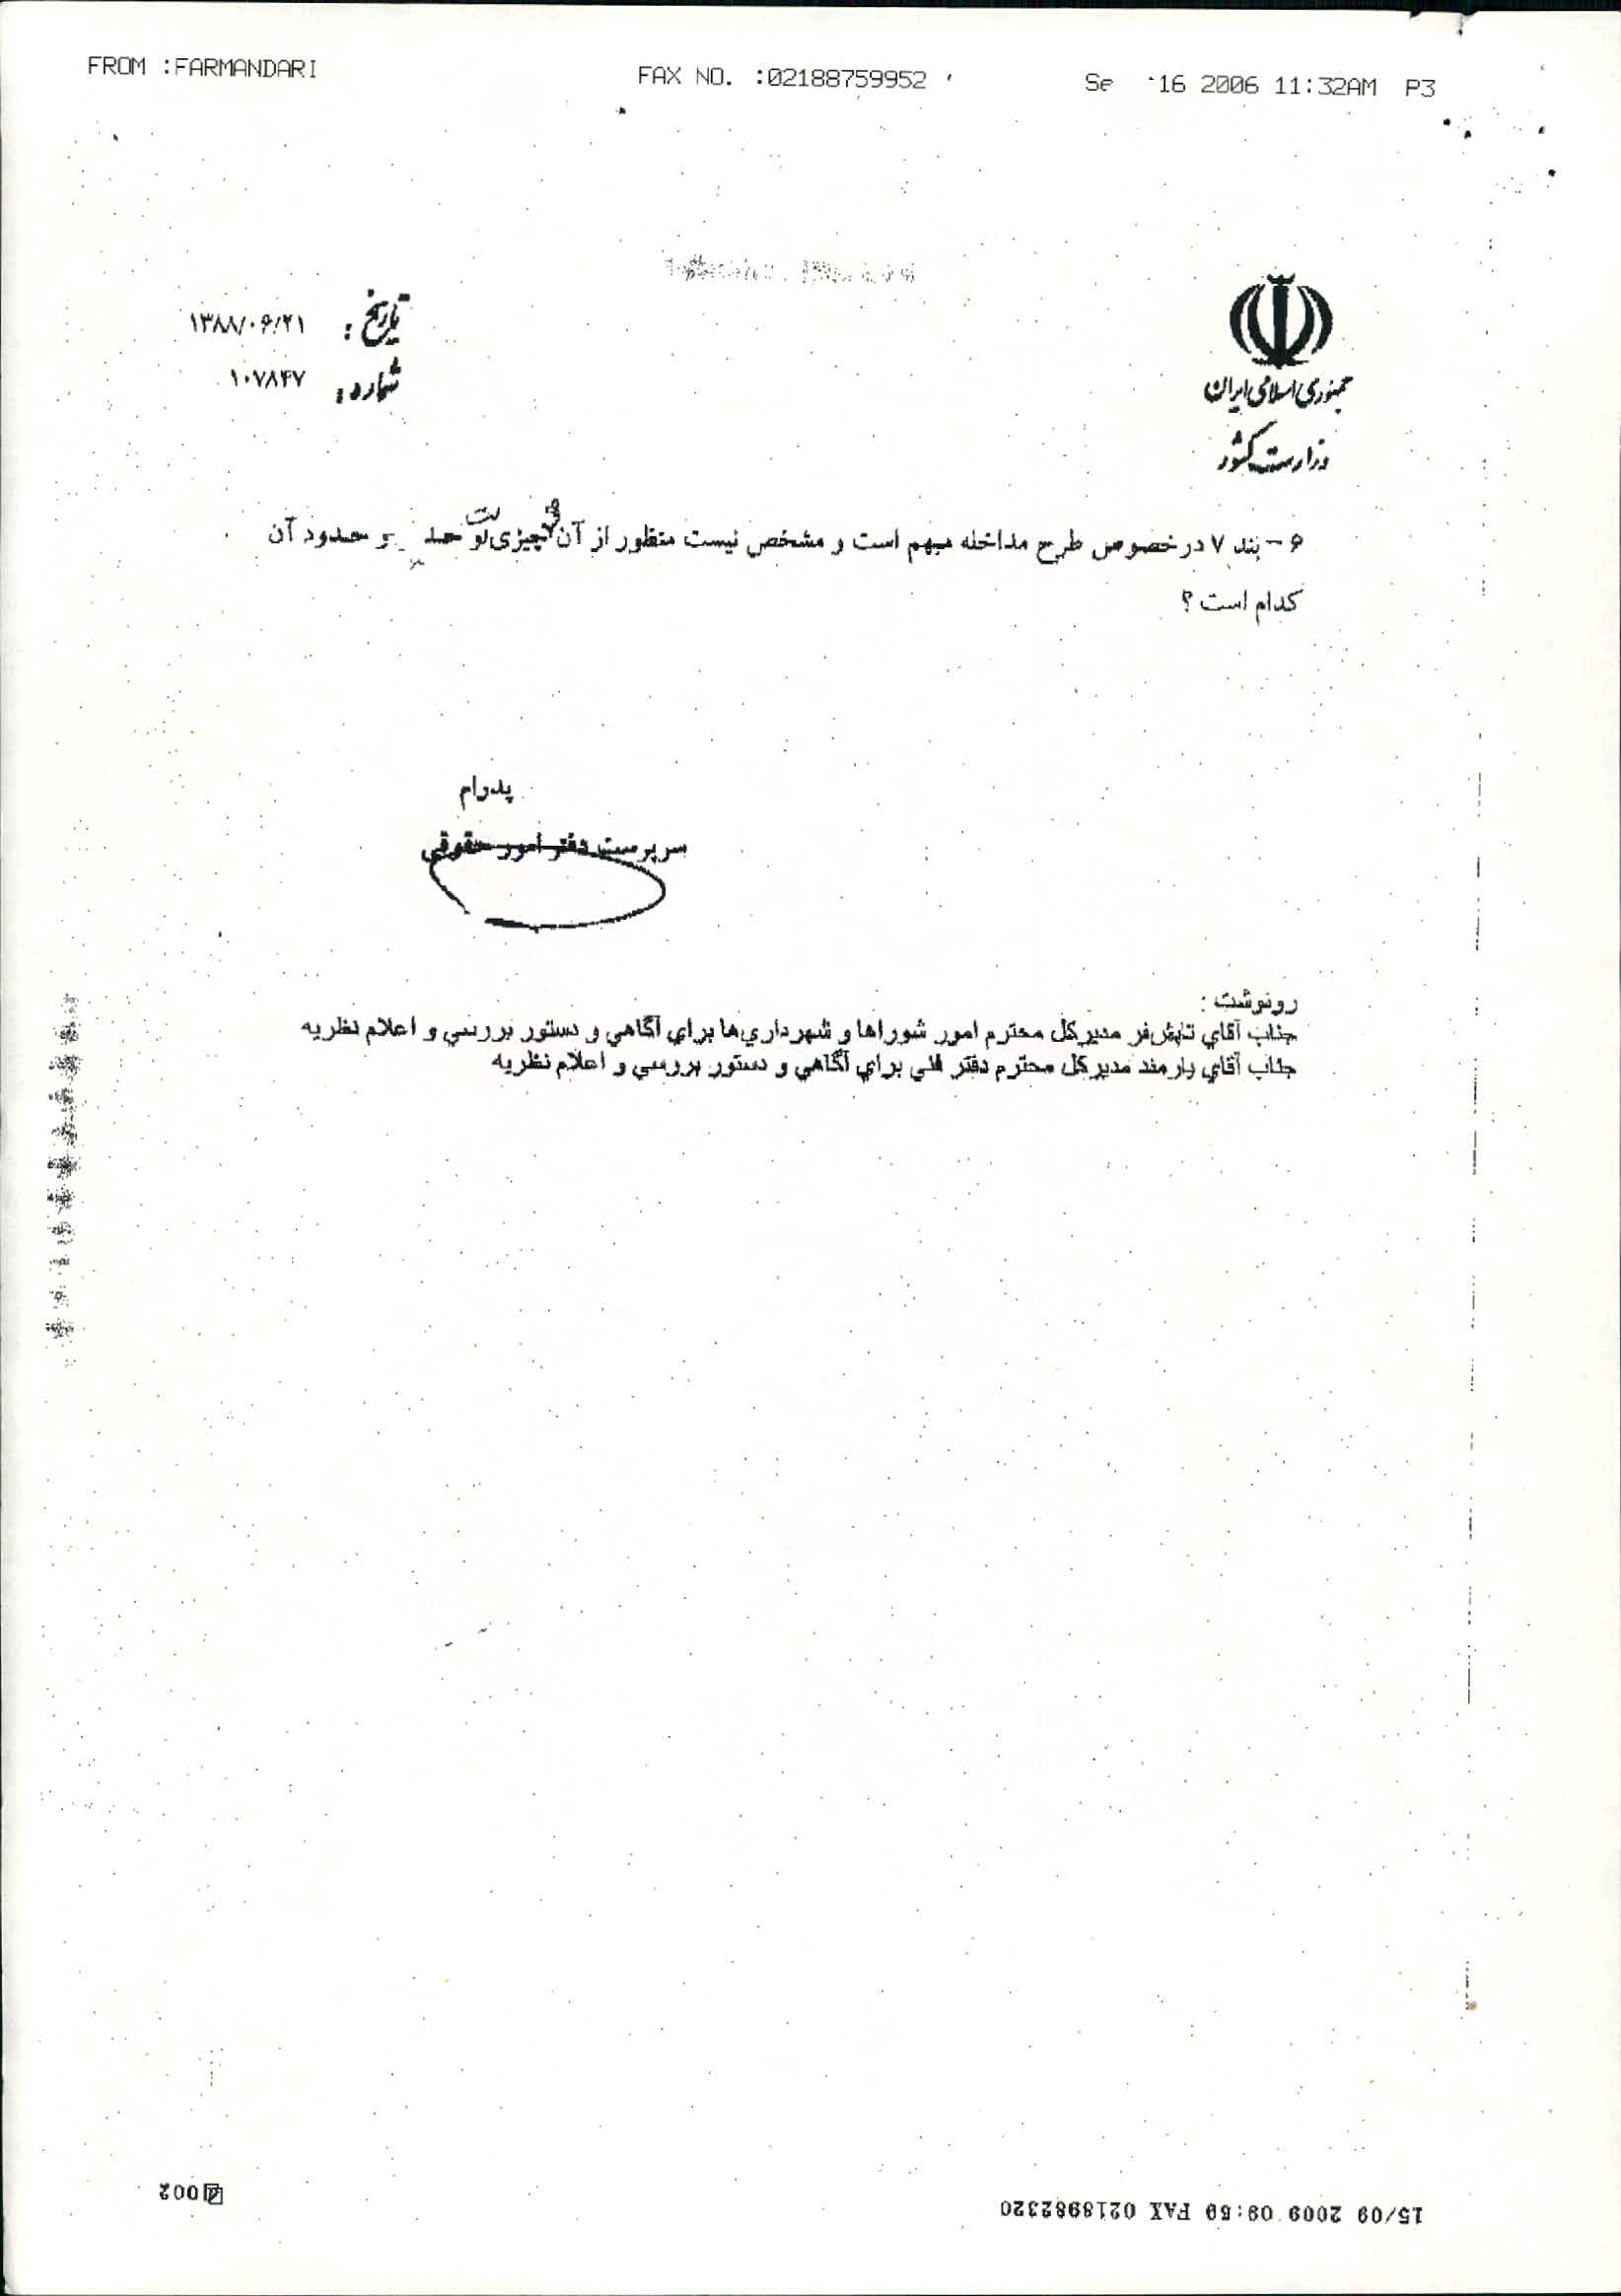 FROM :FARMANDARI FAX NO. :02188759952 Se 16 2006 11:32AM P3
جمهوری اسلامی ایران
وزارت کشور
تاریخ : ۱۳۸۸/۰۶/۲۱
شماره : ۱۰۷۸۴۷
۶- بند ۷ در خصوص طرح مداخله مبهم است و مشخص نیست منظور از آن چیزی و حدود آن
کدام است ؟
پدرام
سرپرست دفتر امور حقوقی
رونوشت :
جناب آقاي تابش‌فر مديركل محترم امور شوراها و شهرداري‌ها براي آگاهي و دستور بررسي و اعلام نظريه
جناب آقاي يارمند مديركل محترم دفتر فني براي آگاهي و دستور بررسي و اعلام نظريه
15/09 2009 09:50 FAX 02189882320
002